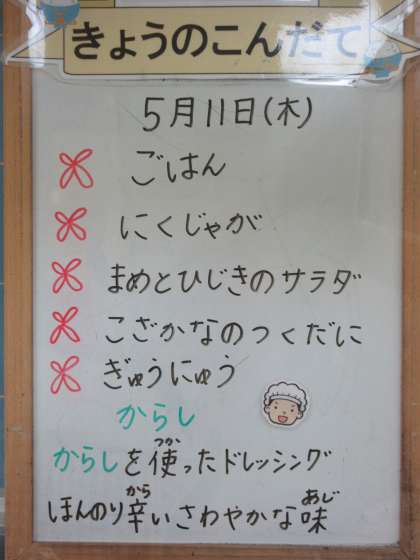 きょうのこんだて
5月11日(木)
ごはん
にくじゃが
まめとひじきのサラダ
こざかなのつくだに
ぎゅうにゅう
からし
からしを使ったドレッシング
つか
ほんのり辛いさわやかな味
から あじ